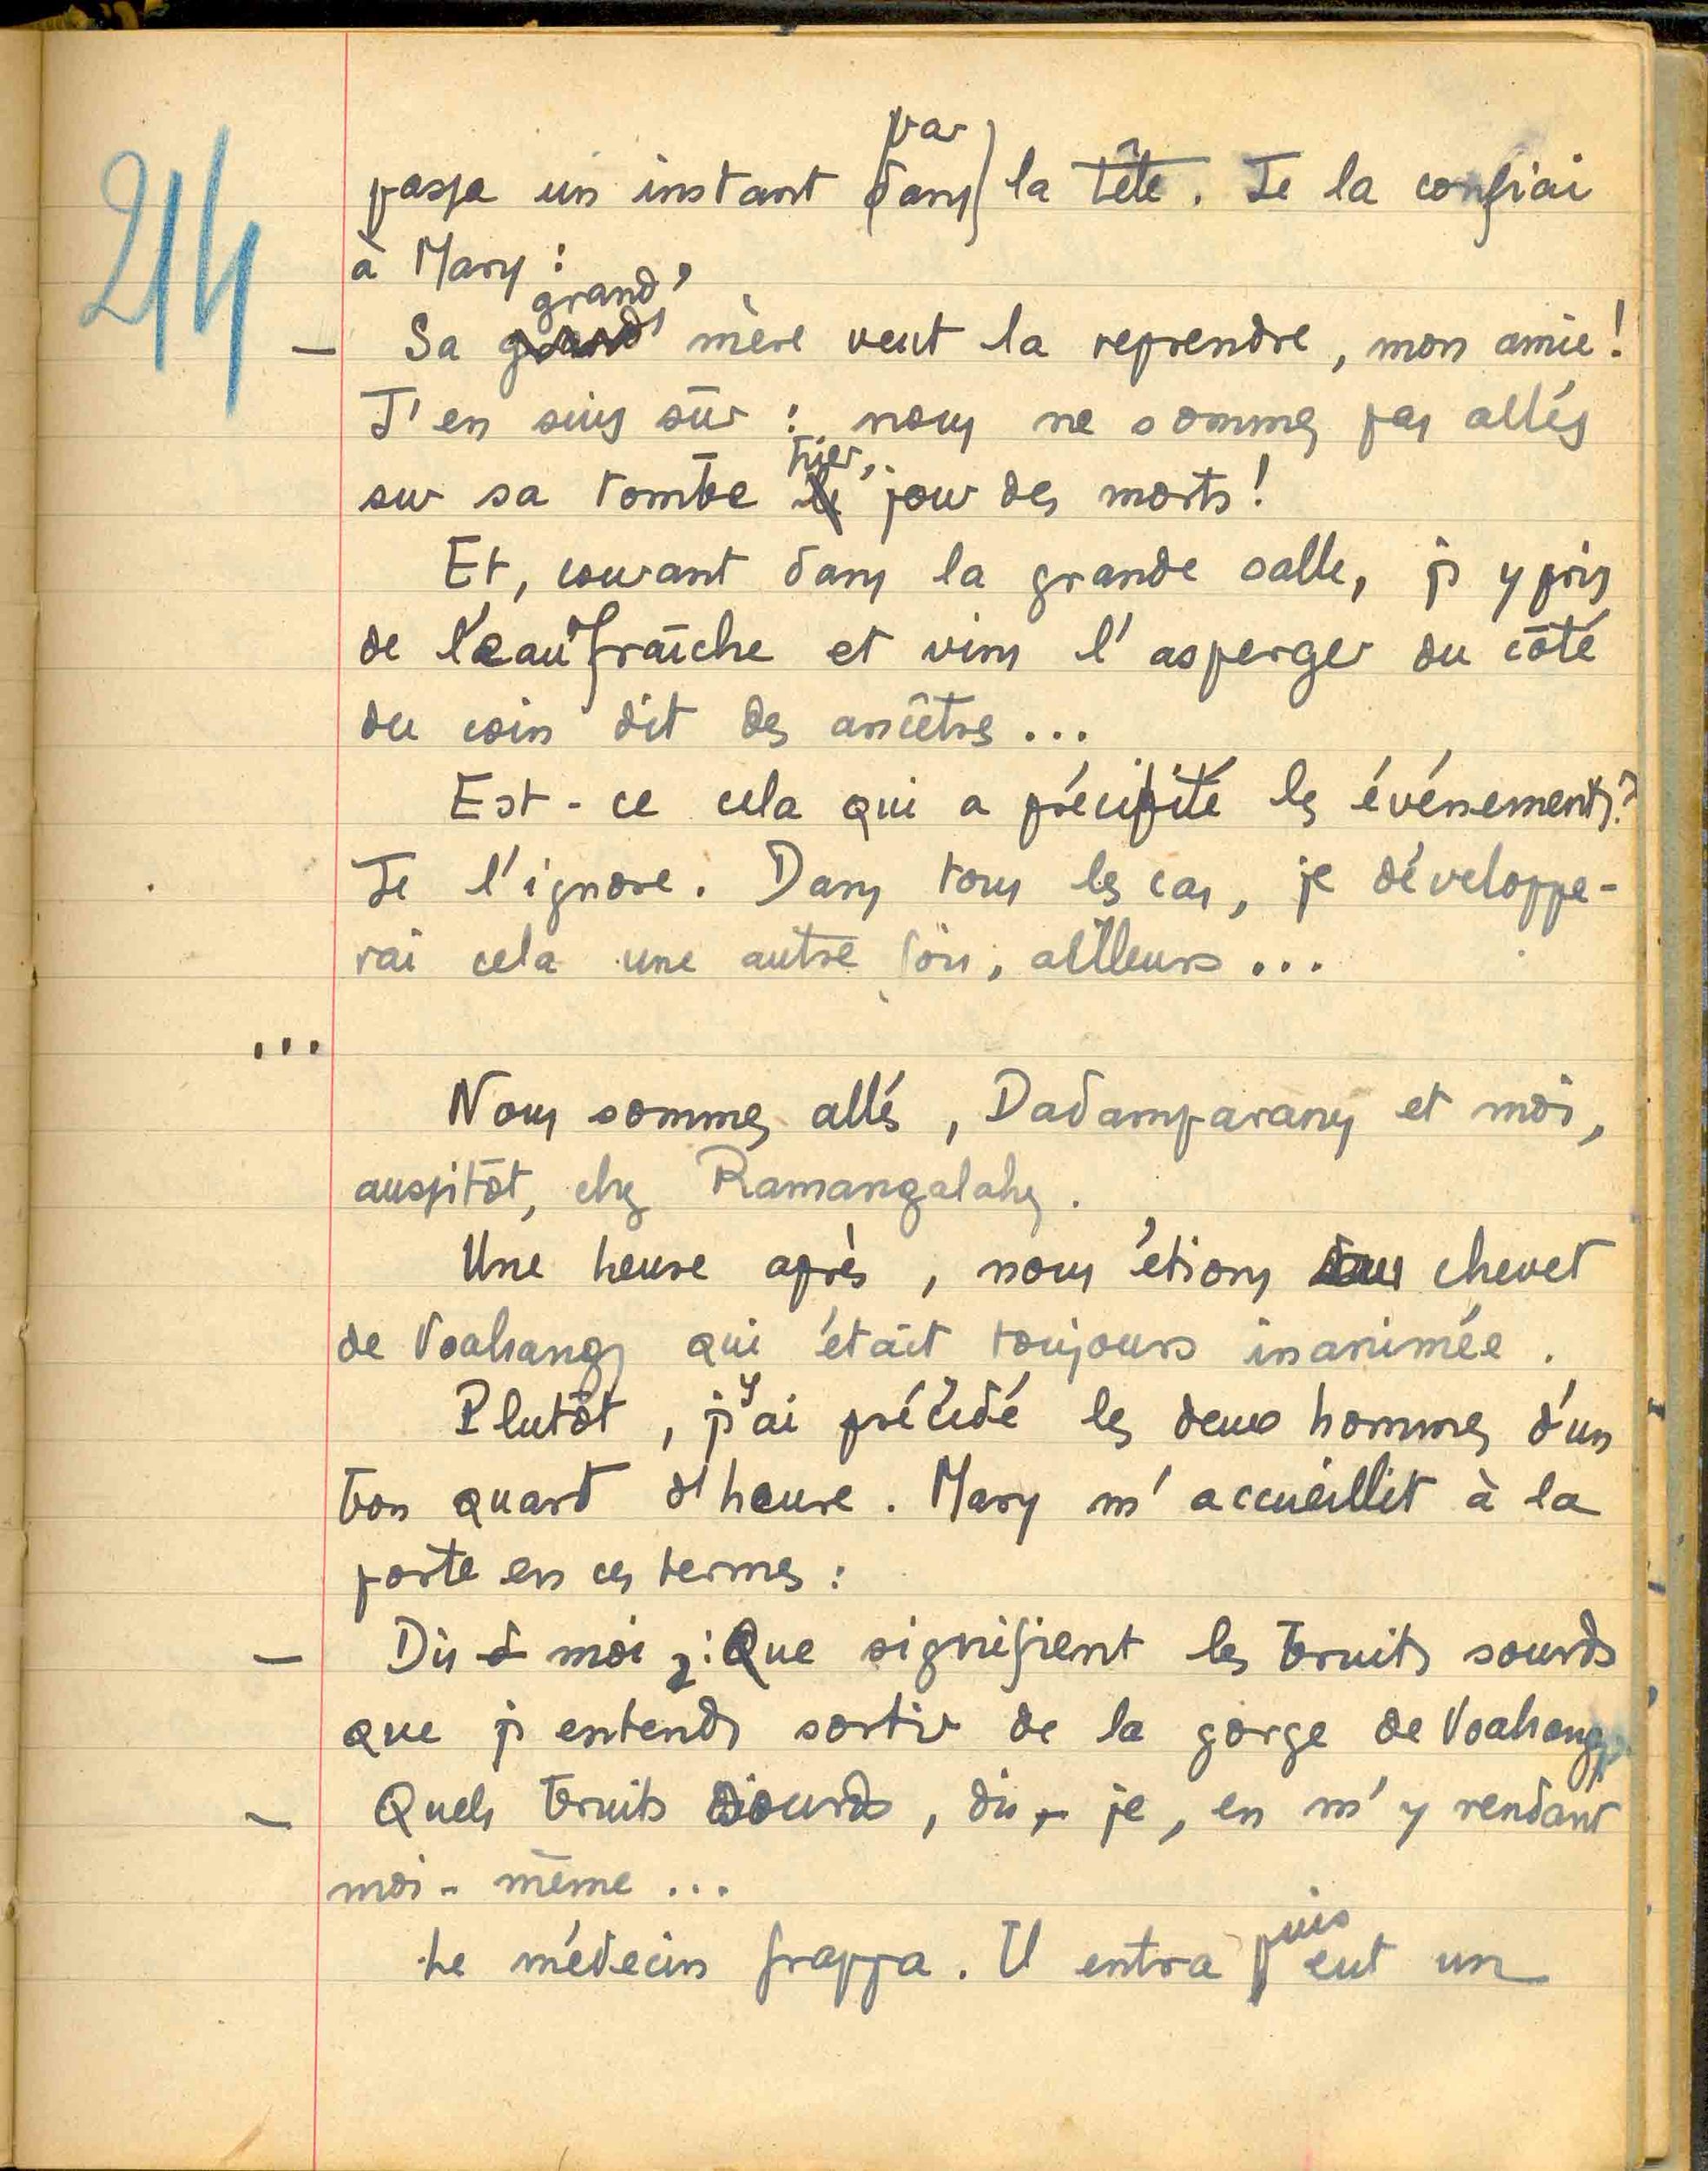 214
passa un instant (dans) par la tête. Je la confiai
à Mary :
— Sa grand' mère veut la reprendre, mon amie !
J'en suis sûr : nous ne sommes pas allés
sur sa tombe hier, jour des morts !
Et, courant dans la grande salle, j'y pris
de l'eau fraîche et vins l'asperger du côté
du coin dit des ancêtres ...
Est-ce cela qui a précipité les événements ?
Je l'ignore. Dans tous les cas, je développe-
rai cela une autre fois, ailleurs ...
...
Nous sommes allés, Dadamparany et moi,
aussitôt, chez Ramangalahy.
Une heure après, nous étions au chevet
de Voahangy qui était toujours inanimée.
Plutôt, j'y ai précédé les deux hommes d'un
bon quart d'heure. Mary m'accueillit à la
porte en ces termes :
— Dis-moi : Que signifient les bruits sourds
que j'entends sortir de la gorge de Voahangy
— Quels bruits sourds, dis-je, en m'y rendant
moi-même ...
Le médecin frappa. Il entra puis eut un